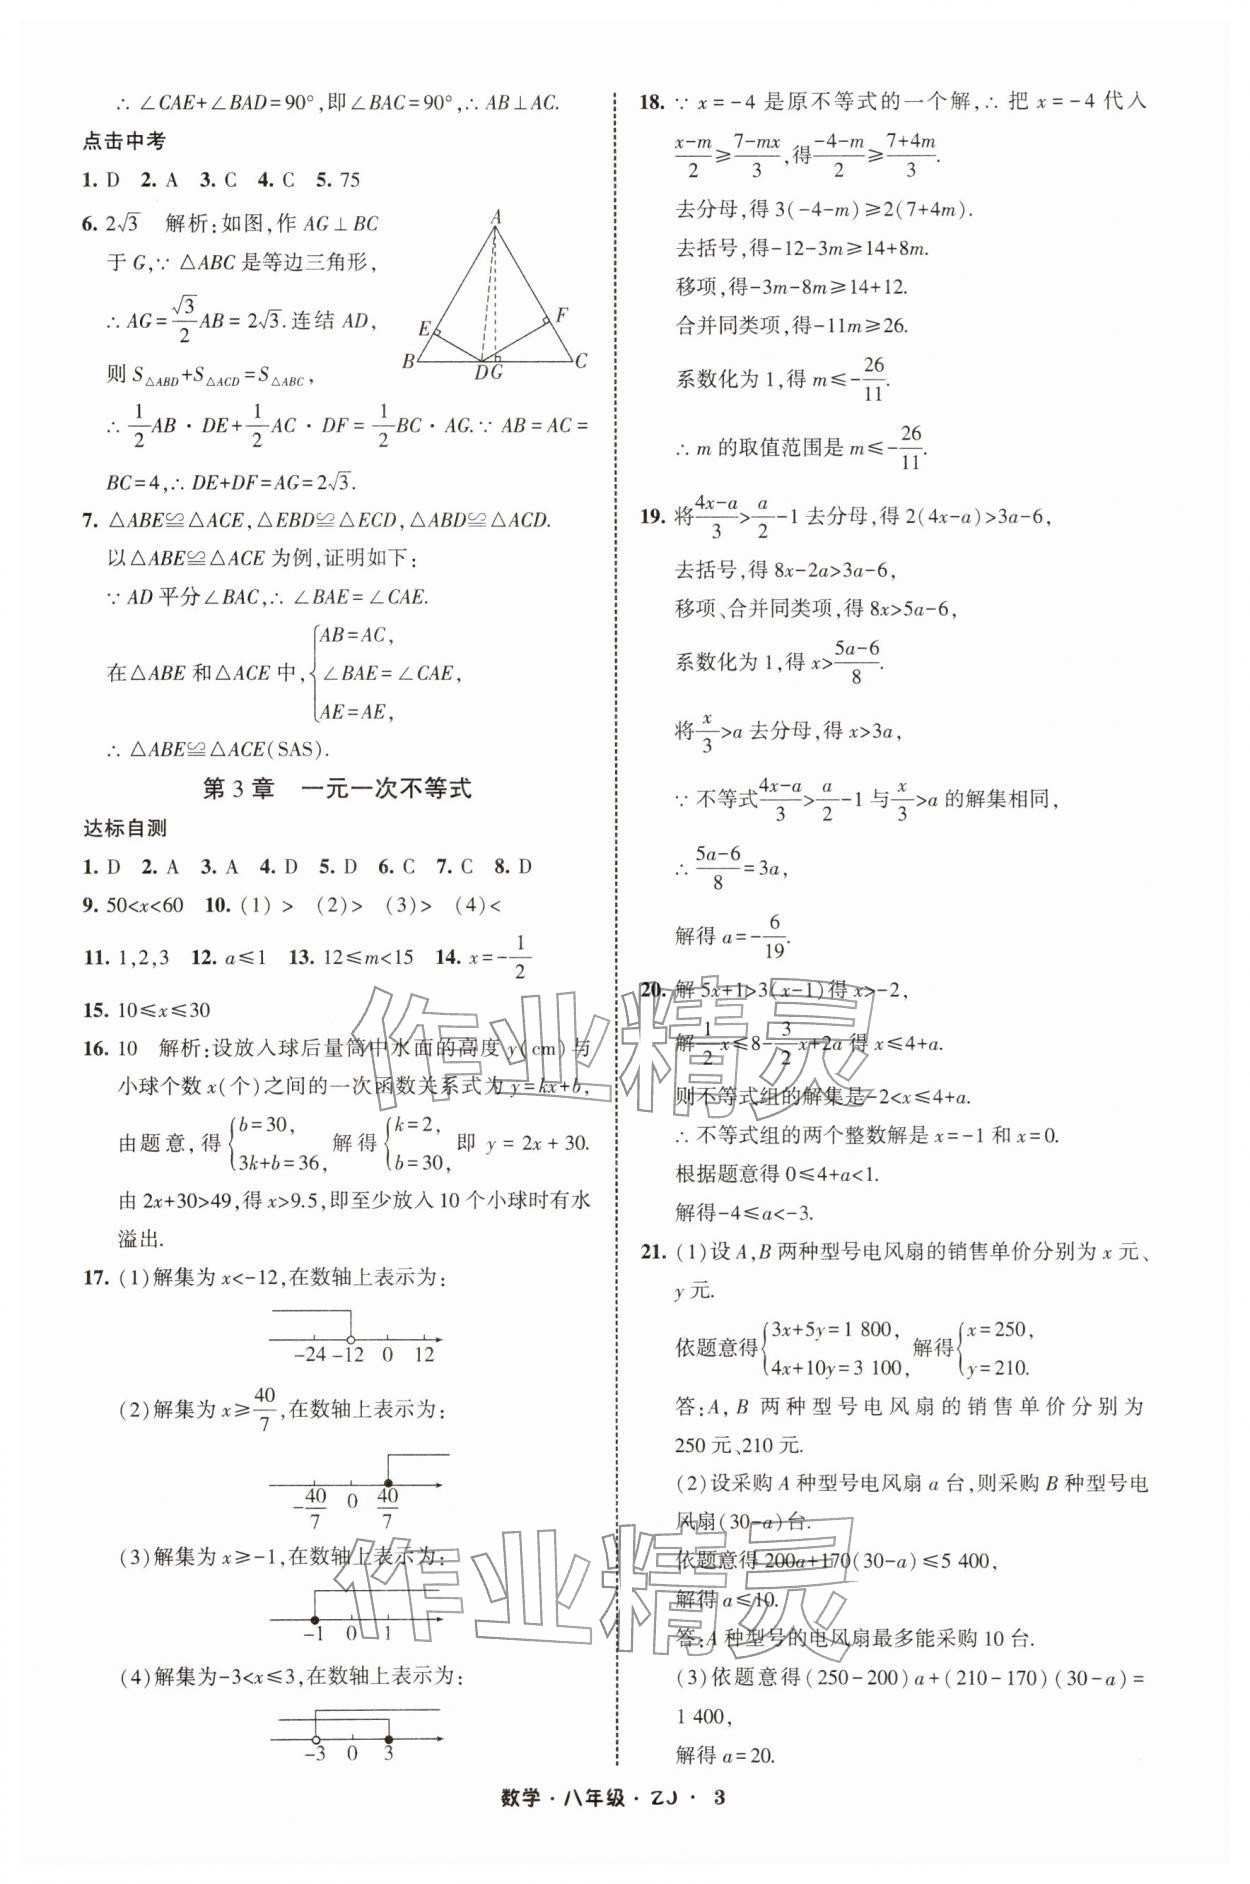 ∴ ∠CAE+∠BAD=90°,即∠BAC=90°,∴ AB⊥AC.
点击中考
1. D  2. A  3. C  4. C  5. 75
6. 2√3  解析:如图,作 AG⊥BC
于 G,∵ △ABC 是等边三角形,
∴ AG=√3/2 AB=2√3.连结 AD,
则 S△ABD+S△ACD=S△ABC,
A
E
F
B
DG
C
∴ 1/2 AB·DE+1/2 AC·DF=1/2 BC·AG.∵ AB=AC=
BC=4,∴ DE+DF=AG=2√3.
7. △ABE≌△ACE,△EBD≌△ECD,△ABD≌△ACD.
以△ABE≌△ACE 为例,证明如下:
∵ AD 平分∠BAC,∴ ∠BAE=∠CAE.
在△ABE 和△ACE 中,{AB=AC,
∠BAE=∠CAE,
AE=AE,
∴ △ABE≌△ACE(SAS).
第 3 章  一元一次不等式
达标自测
1. D  2. A  3. A  4. D  5. D  6. C  7. C  8. D
9. 50<x<60  10. (1) >  (2)>  (3)>  (4)<
11. 1,2,3  12. a≤1  13. 12≤m<15  14. x=-1/2
15. 10≤x≤30
16. 10  解析:设放入球后量筒中水面的高度 y(cm)与
小球个数 x(个)之间的一次函数关系式为 y=kx+b,
由题意,得{b=30, 3k+b=36, 解得{k=2, b=30, 即 y=2x+30.
由 2x+30>49,得 x>9.5,即至少放入 10 个小球时有水
溢出.
17. (1)解集为 x<-12,在数轴上表示为:
-24 -12 0 12
(2)解集为 x≥40/7,在数轴上表示为:
-40/7 0 40/7
(3)解集为 x≥-1,在数轴上表示为:
-1 0 1
(4)解集为-3<x≤3,在数轴上表示为:
-3 0 3
18. ∵ x=-4 是原不等式的一个解,∴ 把 x=-4 代入
(x-m)/2≥(7-mx)/3,得(-4-m)/2≥(7+4m)/3.
去分母,得 3(-4-m)≥2(7+4m).
去括号,得-12-3m≥14+8m.
移项,得-3m-8m≥14+12.
合并同类项,得-11m≥26.
系数化为 1,得 m≤-26/11.
∴ m 的取值范围是 m≤-26/11.
19. 将(4x-a)/3>a/2-1 去分母,得 2(4x-a)>3a-6,
去括号,得 8x-2a>3a-6,
移项、合并同类项,得 8x>5a-6,
系数化为 1,得 x>(5a-6)/8.
将x/3>a 去分母,得 x>3a,
∵ 不等式(4x-a)/3>a/2-1 与x/3>a 的解集相同,
∴ (5a-6)/8=3a,
解得 a=-6/19.
20. 解 5x+1>3(x-1)得 x>-2,
解 1/2 x≤8-3/2 x+2a 得 x≤4+a.
则不等式组的解集是-2<x≤4+a.
∴ 不等式组的两个整数解是 x=-1 和 x=0.
根据题意得 0≤4+a<1.
解得-4≤a<-3.
21. (1)设 A,B 两种型号电风扇的销售单价分别为 x 元、
y 元.
依题意得{3x+5y=1 800, 4x+10y=3 100, 解得{x=250, y=210.
答:A,B 两种型号电风扇的销售单价分别为
250 元、210 元.
(2)设采购 A 种型号电风扇 a 台,则采购 B 种型号电
风扇(30-a)台.
依题意得 200a+170(30-a)≤5 400,
解得 a≤10.
答:A 种型号的电风扇最多能采购 10 台.
(3)依题意得(250-200)a+(210-170)(30-a)=
1 400,
解得 a=20.
作业精灵
作业精灵
数学·八年级·ZJ· 3